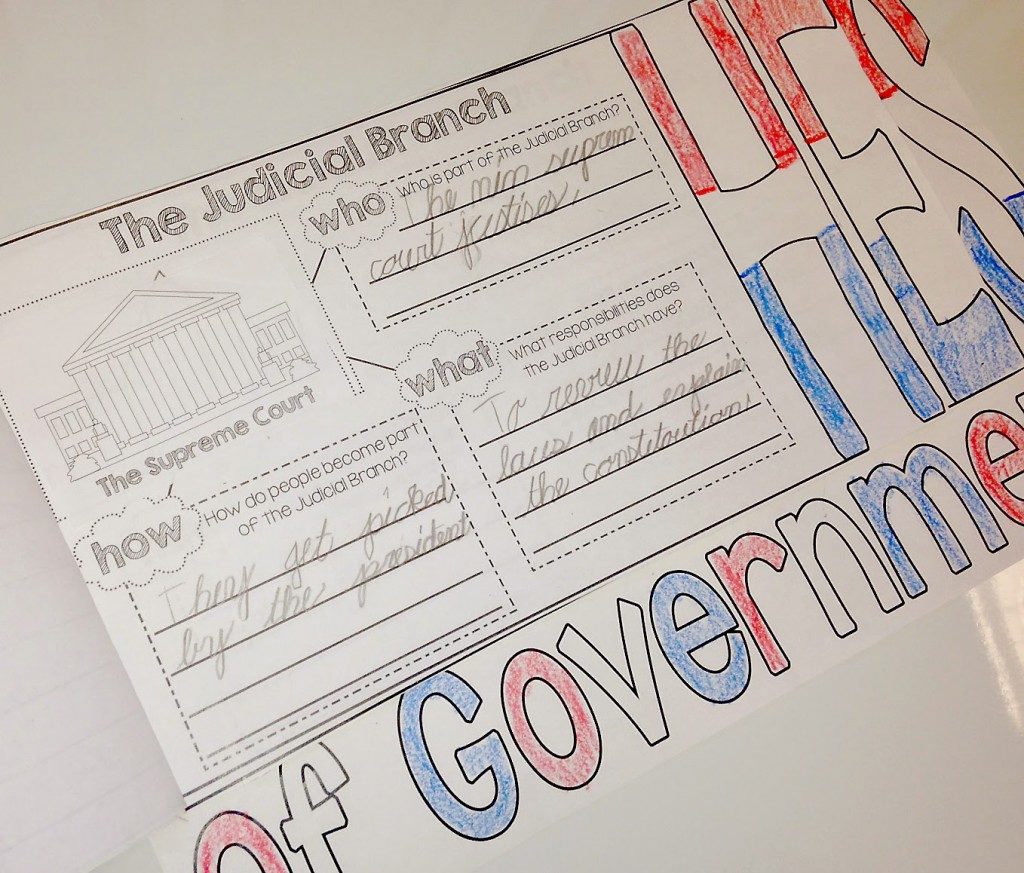 The Judicial Branch
who
Who is part of the Judicial Branch?
The nim suprem
court justises.
The Supreme Court
what
What responsibilities does
the Judicial Branch have?
To the
laws and explain
the
how
How do people become part
of the Judicial Branch?
They get picked
by the president
Of Governme